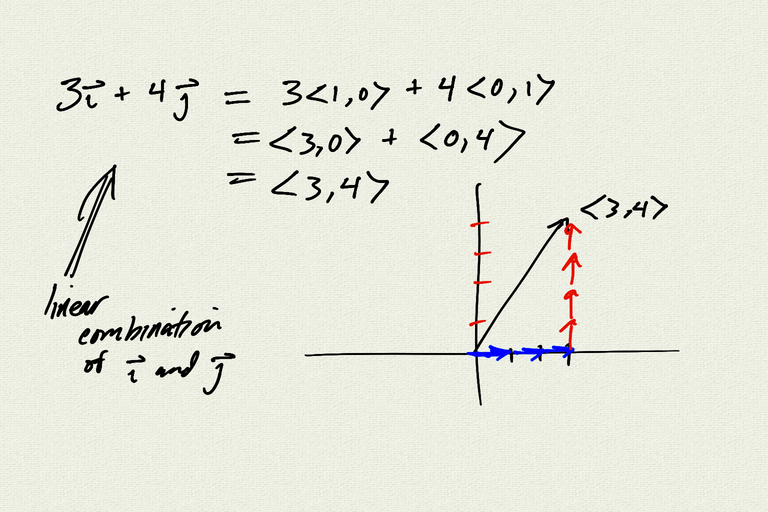 3i⃗ + 4j⃗ = 3<1,0> + 4<0,1>
= <3,0> + <0,4>
= <3,4>
<3,4>
linear
combination
of i⃗ and j⃗